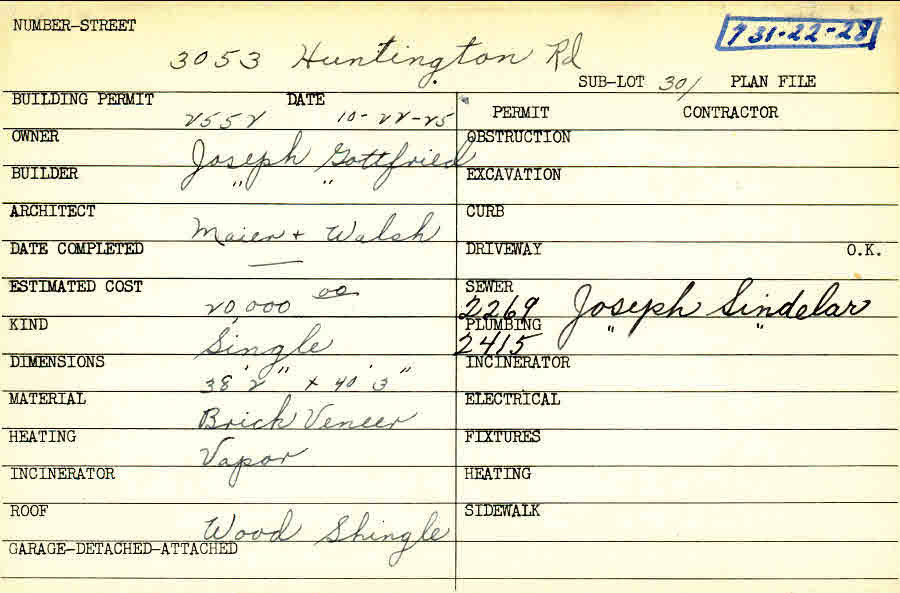 NUMBER-STREET
731-22-28
3053 Huntington Rd
SUB-LOT 301 PLAN FILE
BUILDING PERMIT DATE
2552 10-22-25
PERMIT CONTRACTOR
OWNER
Joseph Gottfried
OBSTRUCTION
BUILDER
" "
EXCAVATION
ARCHITECT
Maier + Walsh
CURB
DATE COMPLETED
—
DRIVEWAY O.K.
ESTIMATED COST
20,000 00
SEWER
2269 Joseph Sindelar
KIND
Single
PLUMBING
2415 " "
DIMENSIONS
38' 2" x 40' 3"
INCINERATOR
MATERIAL
Brick Veneer
ELECTRICAL
HEATING
Vapor
FIXTURES
INCINERATOR
HEATING
ROOF
Wood Shingle
SIDEWALK
GARAGE-DETACHED-ATTACHED